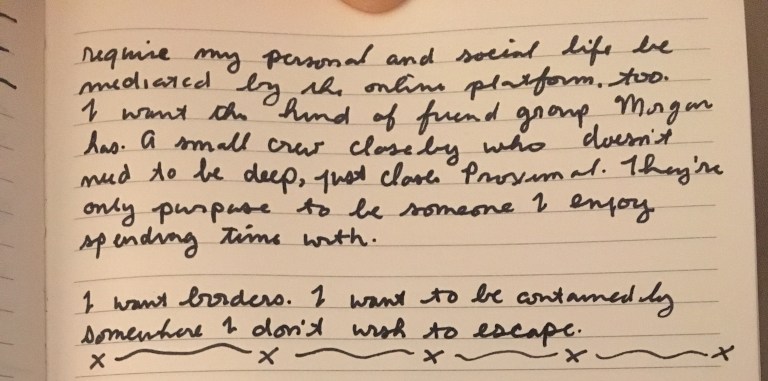 require my personal and social life be
mediated by the online platform, too.
I want the kind of friend group Morgan
has. A small crew close by who doesn't
need to be deep, just close. Proximal. They're
only purpose to be someone I enjoy
spending time with.
I want borders. I want to be contained by
somewhere I don't wish to escape.
x x x x x